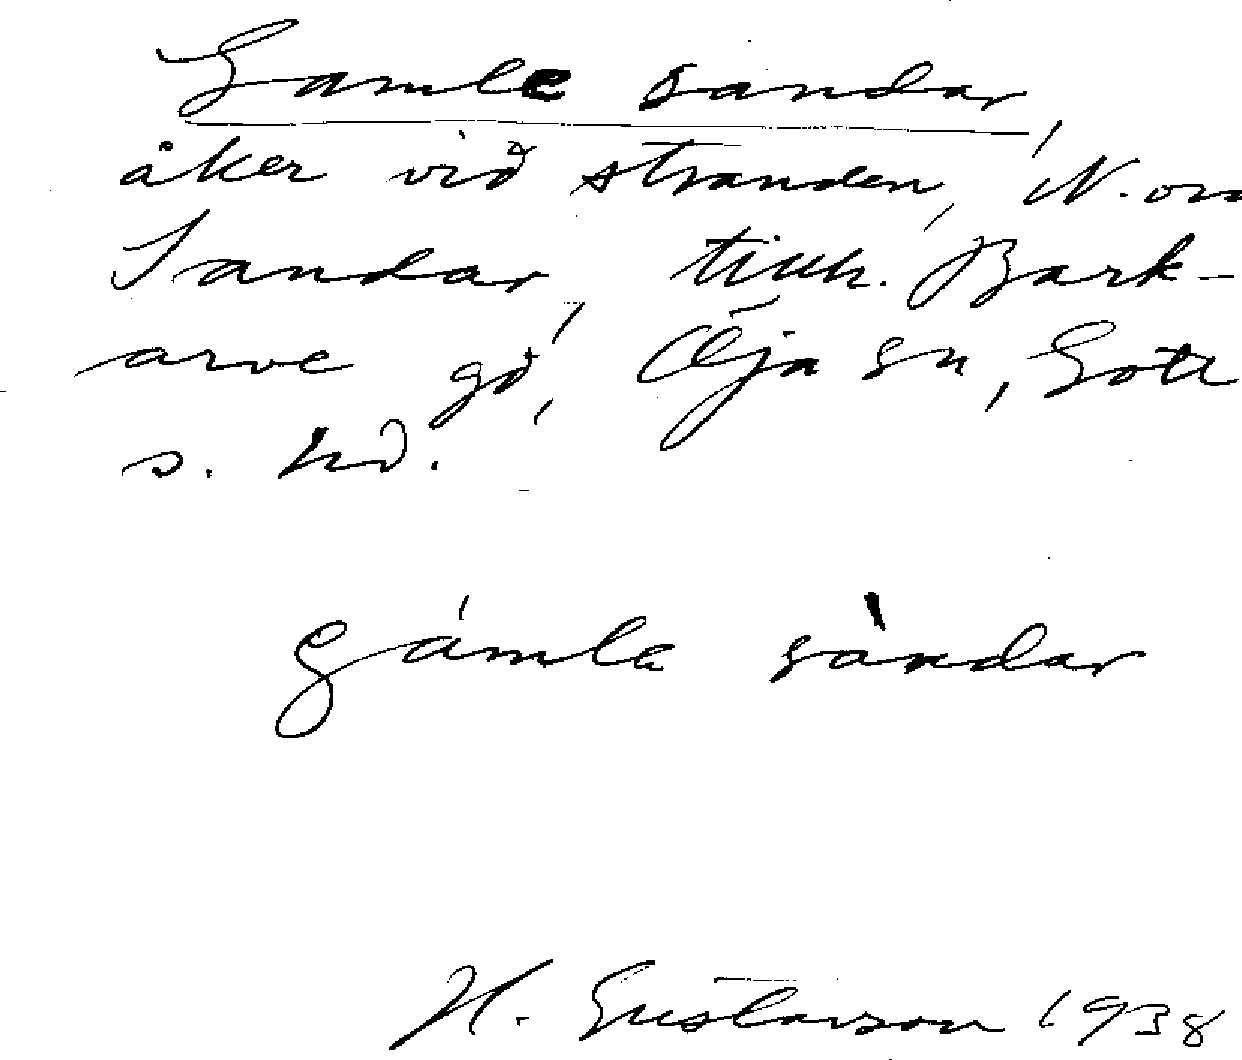 Gamle sandar,
åker vid stranden, N. om
Sandar, tillh. Bark-
arve gd, Öja sn, Gotl
s. hd.
gámle sàndar
H. Gustavson 1938